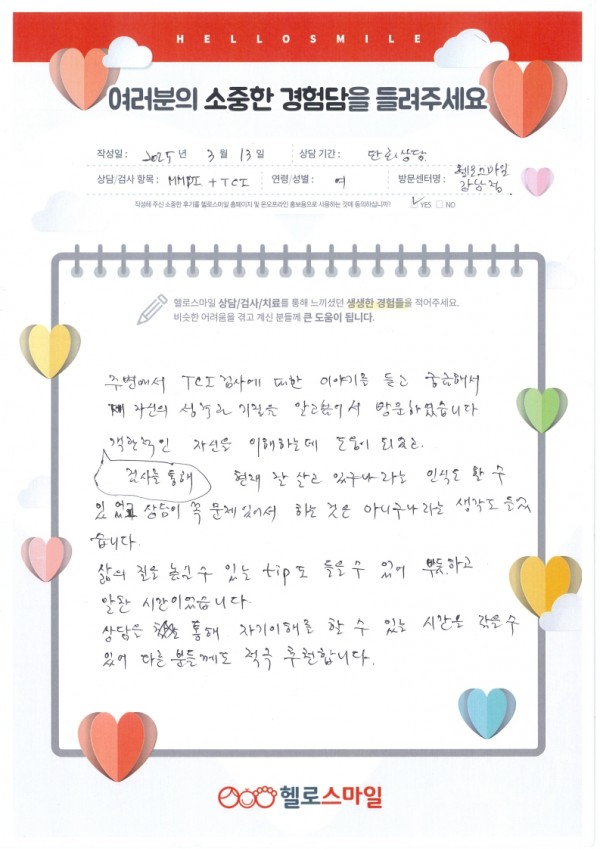 HELLOSMILE
여러분의 소중한 경험담을 들려주세요
작성일 : 2025 년 3 월 13 일 상담 기간 : 단회상담
상담/검사 항목 : MMPI + TCI 연령/성별 : 여 방문센터명 : 헬로스마일 강남점.
작성해 주신 소중한 후기를 헬로스마일 홈페이지 및 온오프라인 홍보용으로 사용하는 것에 동의하십니까? ☑ YES ☐ NO
헬로스마일 상담/검사/치료를 통해 느끼셨던 생생한 경험들을 적어주세요.
비슷한 어려움을 겪고 계신 분들께 큰 도움이 됩니다.
주변에서 TCI 검사에 대한 이야기를 듣고 궁금해서
자신의 성격과 기질을 알고싶어서 방문하였습니다
객관적인 자신을 이해하는데 도움이 되었고.
검사를 통해 현재 잘 살고 있구나 라는 인식도 할 수
있었고 상담이 꼭 문제 있어서 하는 것은 아니구나 라는 생각도 들었
습니다.
삶의 질을 높일 수 있는 tip도 들을 수 있어 뿌듯하고
알찬 시간이었습니다.
상담을 통해 자기이해를 할 수 있는 시간을 갖을 수
있어 다른 분들께도 적극 추천합니다.
헬로스마일